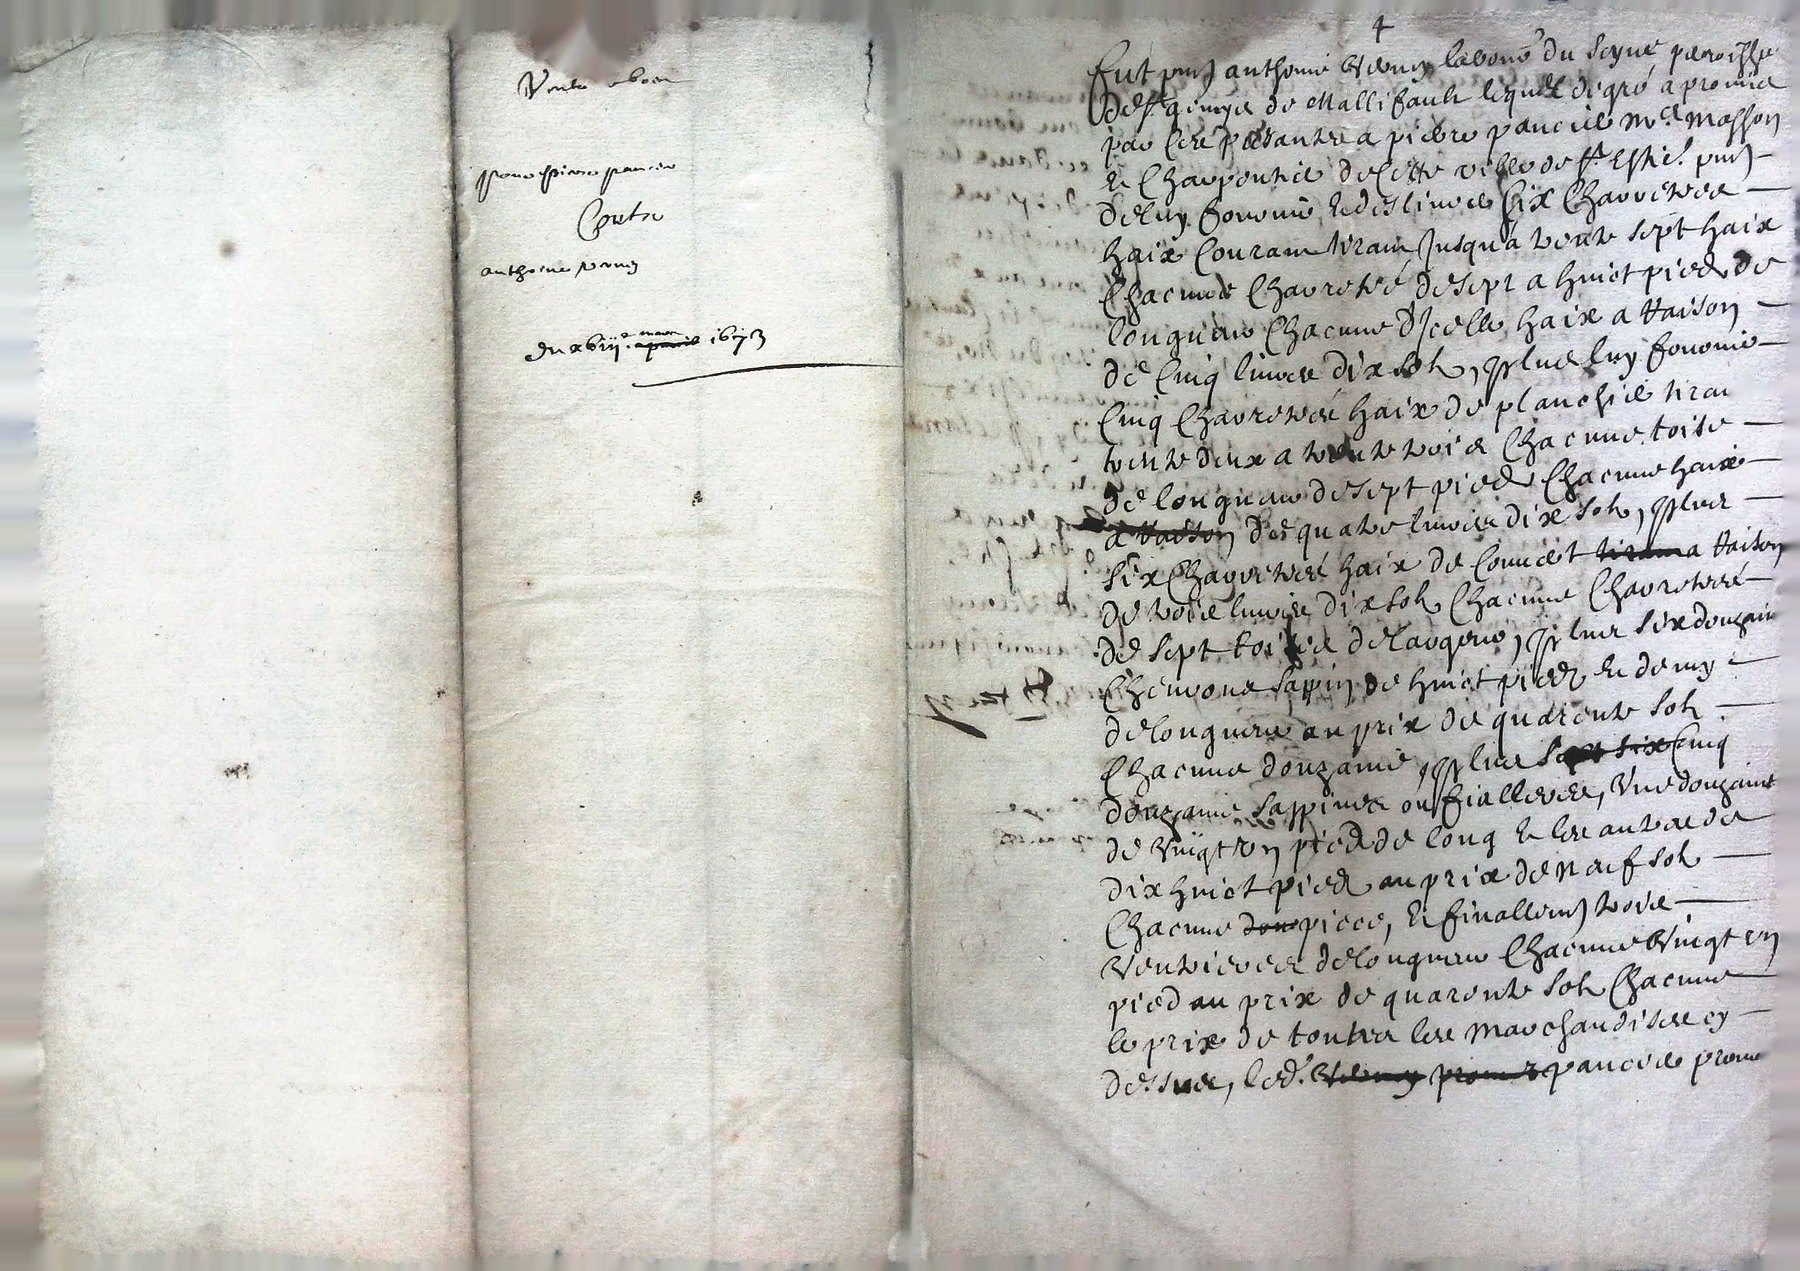 Vente a boix
pour pierre pancier
Contre
anthoine verney
du xbiije. mars apvril 1673
4
fut pnt anthoine verney laboure du seyne paroisse
de st genest de Mallifault lequel de gré a promis
par Ces présantes a pierre pancier me masson
et Charpentier de Cette ville de st Estie. pnt
de luy fournir et deslivrer six Charretees
haix Courant tirant Jusqu'a trente sept haix
Chacune Charretee de sept a huict pieds de
longueur Chacune d'Icelle haix a Raison
de Cinq livres dix sols, plus luy fournir
Cinq Charretees haix de planchié tirant
trente deux a trente trois Chacune toise
de longueur de sept pieds Chacune haix
a Raison de quatre livres dix sols, plus
six Charretees haix de Couuert tirant a Raison
de trois livres dix sols Chacune Charretee
de sept toises de largeur, plus six douzain
Chevrons sappin de huict pieds et demy
de longueur au prix de quarente sols
Chacune douzaine, plus sept six Cinq
douzaine sappines ou fialleres, Vne douzaine
de Vuigt vn pieds de long et les autres de
dix huict pieds au prix de neuf sols
Chacune dou piece, et finallemt trois
Ventrieres de longueur Chacune Vuigt vn
pied au prix de quarente sols Chacune
le prix de toutes les marchandises cy
dessus, led. Verney promet pancier prome